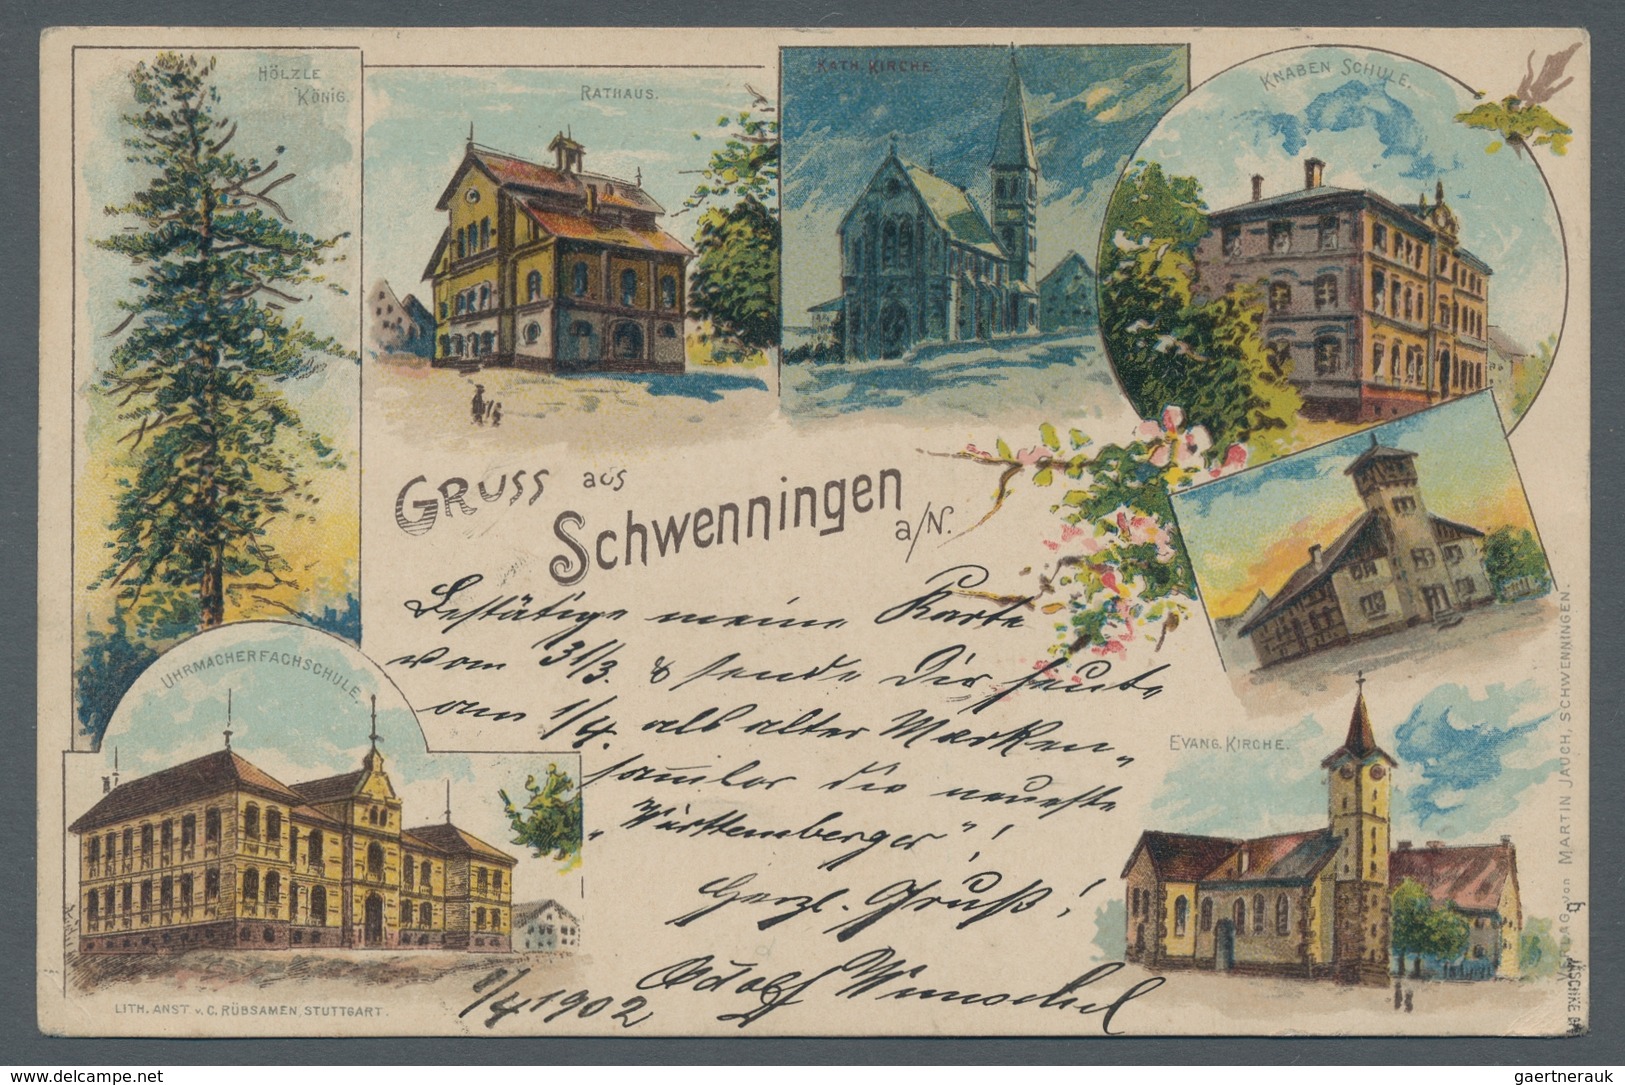 HÖLZLE
KÖNIG.
RATHAUS.
KATH. KIRCHE.
KNABEN SCHULE.
GRUSS aus
Schwenningen
a/N.
Bestätige meine Karte
vom 31/3. & sende Dir heute
am 1/4. als alter Marken-
sam̅ler die neueste
„Württemberger"!
Herzl. Gruß!
Adolf
1/4 1902
UHRMACHERFACHSCHULE.
EVANG. KIRCHE.
LITH. ANST. v. C. RÜBSAMEN, STUTTGART.
VERLAG von MARTIN JAUCH, SCHWENNINGEN.
Delcampe.net
gaertnerauk